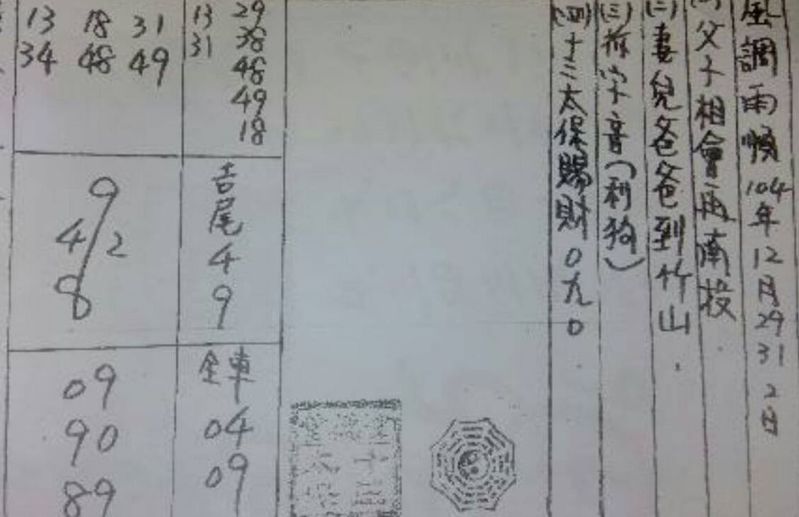 風調雨順104年12月29 31 2日
父子相會再南投
(二)妻兒爸爸到竹山.
(三)拆字音(利狗)
(四)十三太保賜財0九0
13 29
31 38
48
49
18
吉尾
4
9
全車
04
09
13 18 31
34 48 49
9
4/2
8
09
90
89